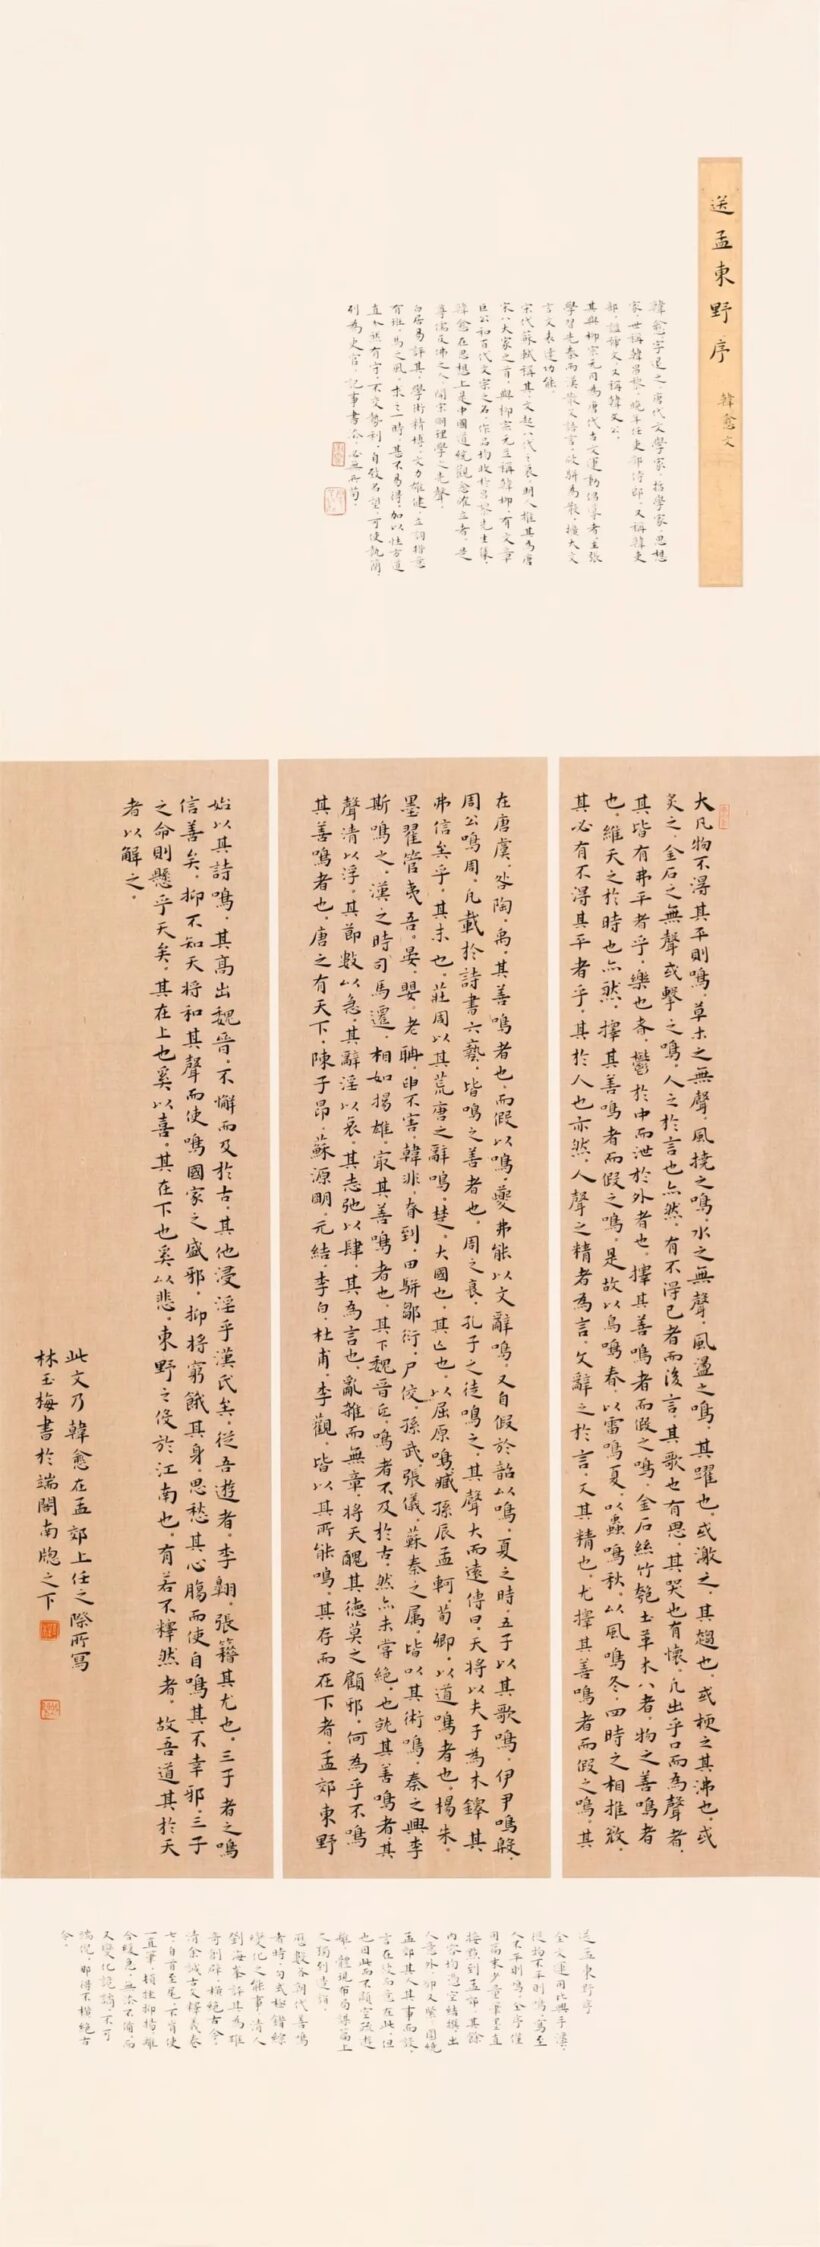 送孟東野序 韓愈文
韓愈字退之，唐代文學家，哲學家，思想
家，世稱韓昌黎，晚年任吏部侍郎，又稱韓吏
部，謚號文，又稱韓文公。
其與柳宗元同為唐代古文運動倡導者，主張
學習先秦兩漢散文語言，破駢為散，擴大文
言文表達功能。
宋代蘇軾稱其文起八代之衰，明人推其為唐
宋八大家之首，與柳宗元並稱韓柳，有文章
巨公和百代文宗之名，作品均收於昌黎先生集，
韓愈在思想上是中國道統觀念確立者，是
尊儒反佛之人，開宋明理學之先聲。
白居易評其，學術精博，文力雄健，立詞措意
有班，馬之風，求之一時，甚不易得，加以性方道
直，介然有守，不交勢利，自致名望，可使執簡，
列為史官，記事書法，必無所苟。
大凡物不得其平則鳴，草木之無聲，風撓之鳴，水之無聲，風盪之鳴，其躍也，或激之，其趨也，或梗之其沸也，或
炙之，金石之無聲或擊之鳴，人之於言也亦然，有不得已者而後言，其歌也有思，其哭也有懷，凡出乎口而為聲者，
其皆有弗平者乎，樂也者，鬱於中而泄於外者也，擇其善鳴者而假之鳴，金石絲竹匏土革木八者，物之善鳴者
也，維天之於時也亦然，擇其善鳴者而假之鳴，是故以鳥鳴春，以雷鳴夏，以蟲鳴秋，以風鳴冬，四時之相推敚，
其必有不得其平者乎，其於人也亦然，人聲之精者為言，文辭之於言，又其精也，尤擇其善鳴者而假之鳴，其
在唐虞，咎陶，禹，其善鳴者也，而假以鳴，夔弗能以文辭鳴，又自假於韶以鳴，夏之時，五子以其歌鳴，伊尹鳴殷，
周公鳴周，凡載於詩書六藝，皆鳴之善者也，周之衰，孔子之徒鳴之，其聲大而遠，傳曰，天將以夫子為木鐸，其
弗信矣乎，其末也，莊周以其荒唐之辭鳴，楚，大國也，其亡也，以屈原鳴，臧孫辰孟軻，荀卿，以道鳴者也，楊朱，
墨翟管夷吾，晏嬰，老聃，申不害，韓非，昚到，田駢鄒衍，尸佼，孫武，張儀，蘇秦之屬，皆以其術鳴，秦之興，李
斯鳴之，漢之時司馬遷，相如揚雄，最其善鳴者也，其下魏晉氏，鳴者不及於古，然亦未嘗絕，也就其善鳴者，其
聲清以浮，其節數以急，其辭淫以哀，其志弛以肆，其為言也，亂雜而無章，將天醜其德莫之顧邪，何為乎不鳴
其善鳴者也，唐之有天下，陳子昂，蘇源明，元結，李白，杜甫，李觀，皆以其所能鳴，其存而在下者，孟郊東野
始以其詩鳴，其高出魏晉，不懈而及於古，其他浸淫乎漢氏矣，從吾遊者，李翱，張籍其尤也，三子者之鳴
信善矣，抑不知天將和其聲而使鳴國家之盛邪，抑將窮餓其身，思愁其心腸而使自鳴其不幸邪，三子
之命則懸乎天矣，其在上也奚以喜，其在下也奚以悲，東野之役於江南也，有若不釋然者，故吾道其於天
者以解之。
此文乃韓愈在孟郊上任之際所寫
林玉梅書於端閣南牕之下
送孟東野序
全文運用比興手法，
從物不平則鳴，寫至
人不平則鳴，全序僅
用篇末少量筆墨直
接點到孟郊，其餘
內容均憑空結撰，出
人意外，卻又緊緊圍繞
孟郊其人其事而設，
言在彼而意在此，但
也因此而不顯空疏遊
離，體現布局謀篇上
之獨到造詣，
歷數各朝代善鳴
者時，句式極錯綜
變化之能事，清人
劉海峯評其為雄
奇創闢，橫絕古今，
清余誠古文釋義卷
七，自首至尾，不肯使
一直筆，頓挫抑揚，離
合緩急，無法不備，而
又變化詭譎，不可
端倪，那得不橫絕古
今。